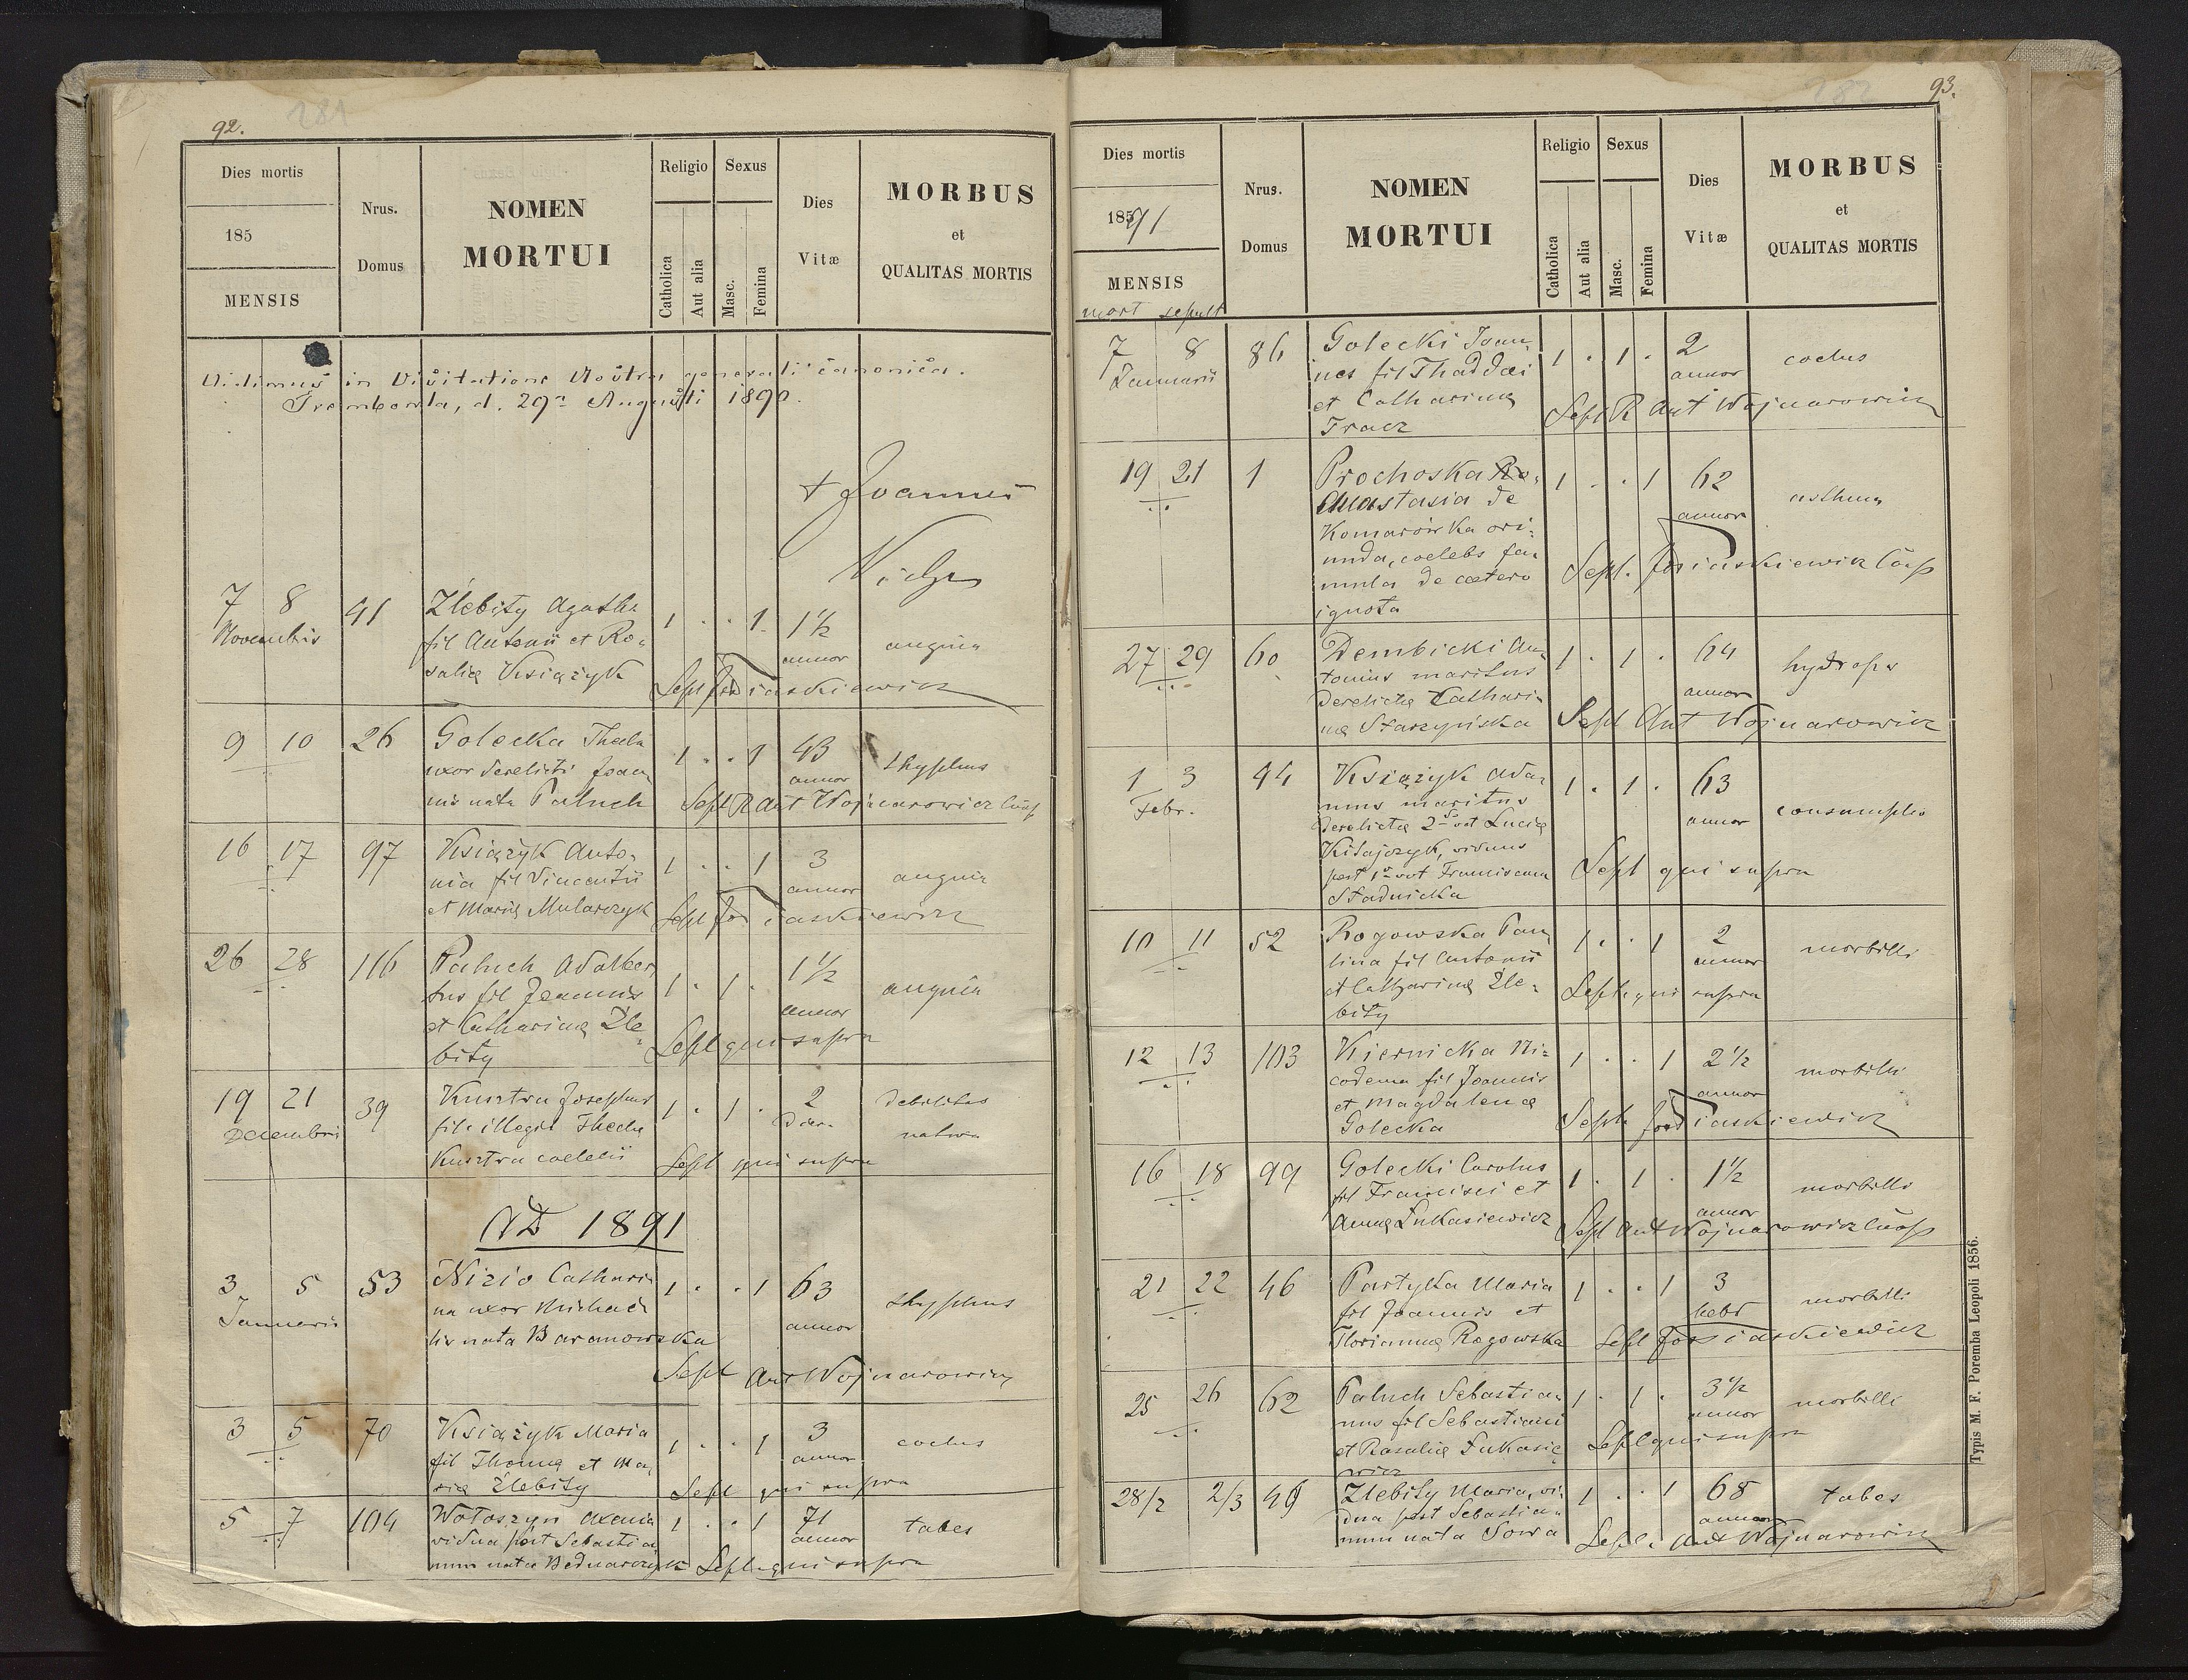 92.
281
Dies mortis
185
MENSIS
Nrus.
Domus
NOMEN
MORTUI
Religio
Catholica
Aut alia
Sexus
Masc.
Femina
Dies
Vitæ
MORBUS
et
QUALITAS MORTIS
Vidimus in Visitatione Nostra generali canonica.
Trembowla, d. 29a Augusti 1890.
+ Joannes
7 8
Novembris
91
Źlebity Agatha
fil Antonii et Ro-
salię Książyk
1 . . 1
1½
annor
angina
Sepl Jos iaskiewicz
9 10
26
Golecka Thecla
uxor derelicti Joan
nis nata Paluch
1 . . 1
43
annor
thyphus
Sepl R Ant Wojnarowicz
16 17
97
Książyk Anto-
nia fil Vincentii
et Marię Mularczyk
1 . . 1
3
annor
angina
Sepl Jos iaskiewicz
26 28
116
Paluch Adalber
tus fil Joannis
et Catharinę Źle
bity
1 . 1 .
1½
annor
angina
Sepl qui supra
19 21
Decembris
39
Kusztra Josephus
fil. illegit Theclę
Kusztra coelebis
1 . 1 .
2
dier.
debilitas
nativa
Sepl qui supra
AD 1891
3 5
Januaris
53
Nizio Cathari
na uxor Michae
lis nata Baranowska
1 . . 1
63
annor
thyphus
Sepl Ant Wojnarowicz
3 5
70
Książyk Maria
fil Thomę et Ma
rię Źlebity
1 . . 1
3
annor
coclus
Sepl qui supra
5 7
104
Wołoszyn Axenia
vidua post Sebastia
num nata Bednarczyk
1 . . 1
71
annor
tabes
Sepl. qui supra
93.
282
Dies mortis
1891
MENSIS
mort sepult
Nrus.
Domus
NOMEN
MORTUI
Religio
Catholica
Aut alia
Sexus
Masc.
Femina
Dies
Vitæ
MORBUS
et
QUALITAS MORTIS
7 8
Januarii
86
Golecki Joan
nes fil Thaddæi
et Catharinę
Tracz
1 . 1 .
2
annor
coclus
Sepl R Ant Wojnarowicz
19 21
1
Prochoska
Anastasia de
Komarówka ori-
unda, coelebs fa-
mula de cætero
ignota
1 . . 1
62
annor
asthma
Sepl. Jos iaskiewicz
27 29
60
Dembicki An
tonius maritus
derelictę Cathari
nę Starzyńska
1 . 1 .
64
annor
hydrops
Sepl Ant Wojnarowicz
1 3
Febr.
94
Książyk Ada-
mus maritus
derelictę 2do vot Lucię
Kitajczyk, viduus
post 1o vot Franciscam
Stadnicka
1 . 1 .
63
annor
consumptio
Sepl qui supra
10 11
52
Rogowska Pau
lina fil Antonii
et Catharinę Źle-
bity
1 . . 1
2
annor
morbilli
Sepl. qui supra
12 13
103
Kiernicka Ni-
codema fil Joannis
et Magdalenę
Golecka
1 . . 1
2½
annor
morbilli
Sepl. Jos iaskiewicz
16 18
99
Golecki Carolus
fil Francisci et
Annę Łukasiewicz
1 . 1 .
1½
annor
morbilli
Sepl Ant Wojnarowicz
21 22
46
Partyka Maria
fil Joannis et
Floriannę Rogowska
1 . . 1
3
hebd
morbilli
Sepl Jos iaskiewicz
25 26
62
Paluch Sebastia-
nus fil Sebastiani
et Rosalię Łukasie
wicz
1 . 1 .
3½
annor
morbilli
Sepl qui supra
28/2 2/3
49
Źlebity Maria, vi-
dua post Sebastia-
num nata Sowa
1 . . 1
68
annor
tabes
Sepl. Ant Wojnarowicz
Typis M. F. Poremba Leopoli 1856.